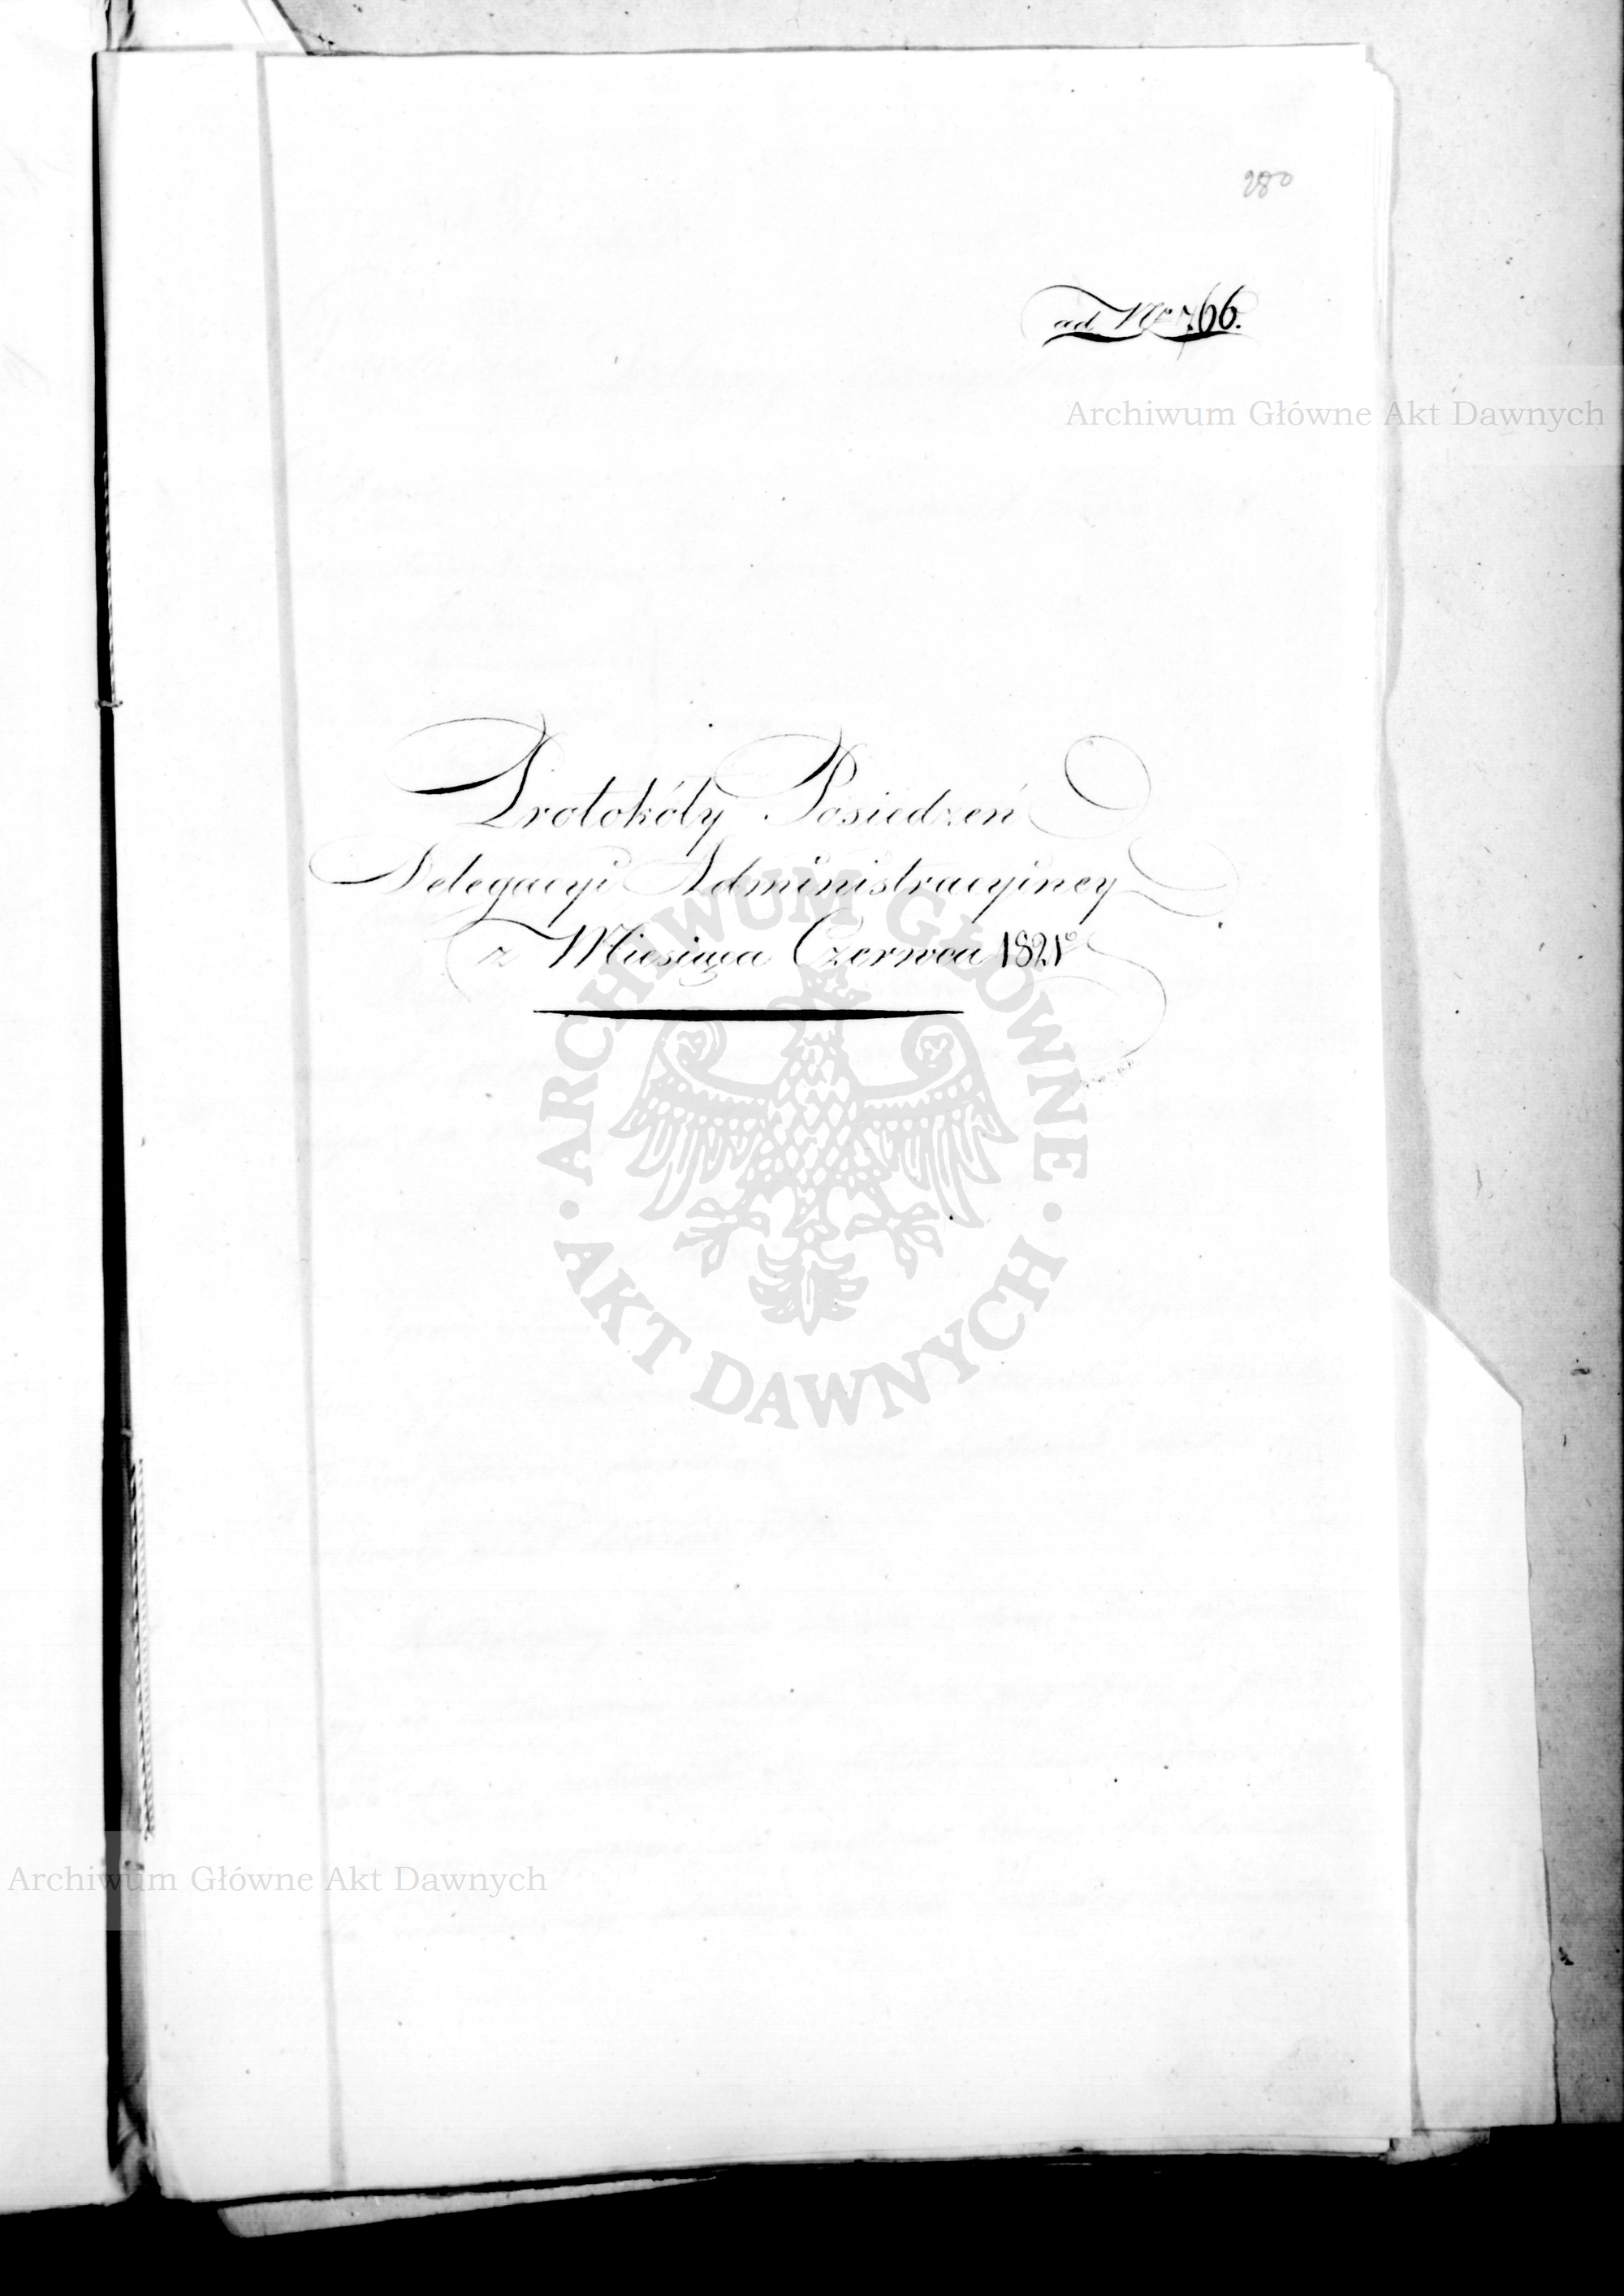 280
ad Nro 766.
Archiwum Główne Akt Dawnych
Protokóły Posiedzeń
Delegacyi Administracyiney
z Miesiąca Czerwca 1821o
ARCHIWUM GŁÓWNE
AKT DAWNYCH
Archiwum Główne Akt Dawnych